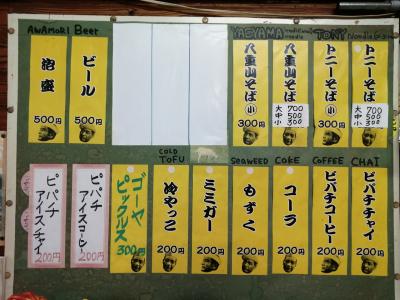 AWAMORI Beer YAEYAMA noodle TONY Noodle
泡盛 500円
ビール 500円
八重山そば 小 300円
八重山そば 大 700 中 500 小 300
トニーそば 小 300円
トニーそば 大 700 中 500 小 300
COLD TOFU SEAWEED COKE COFFEE CHAI
ピパチアイスチャイ 200円
ピパチアイスコーヒー 200円
ゴーヤピックルス 300円
冷やっこ 200円
ミミガー 200円
もずく 200円
コーラ 200円
ピパチコーヒー 200円
ピパチチャイ 200円